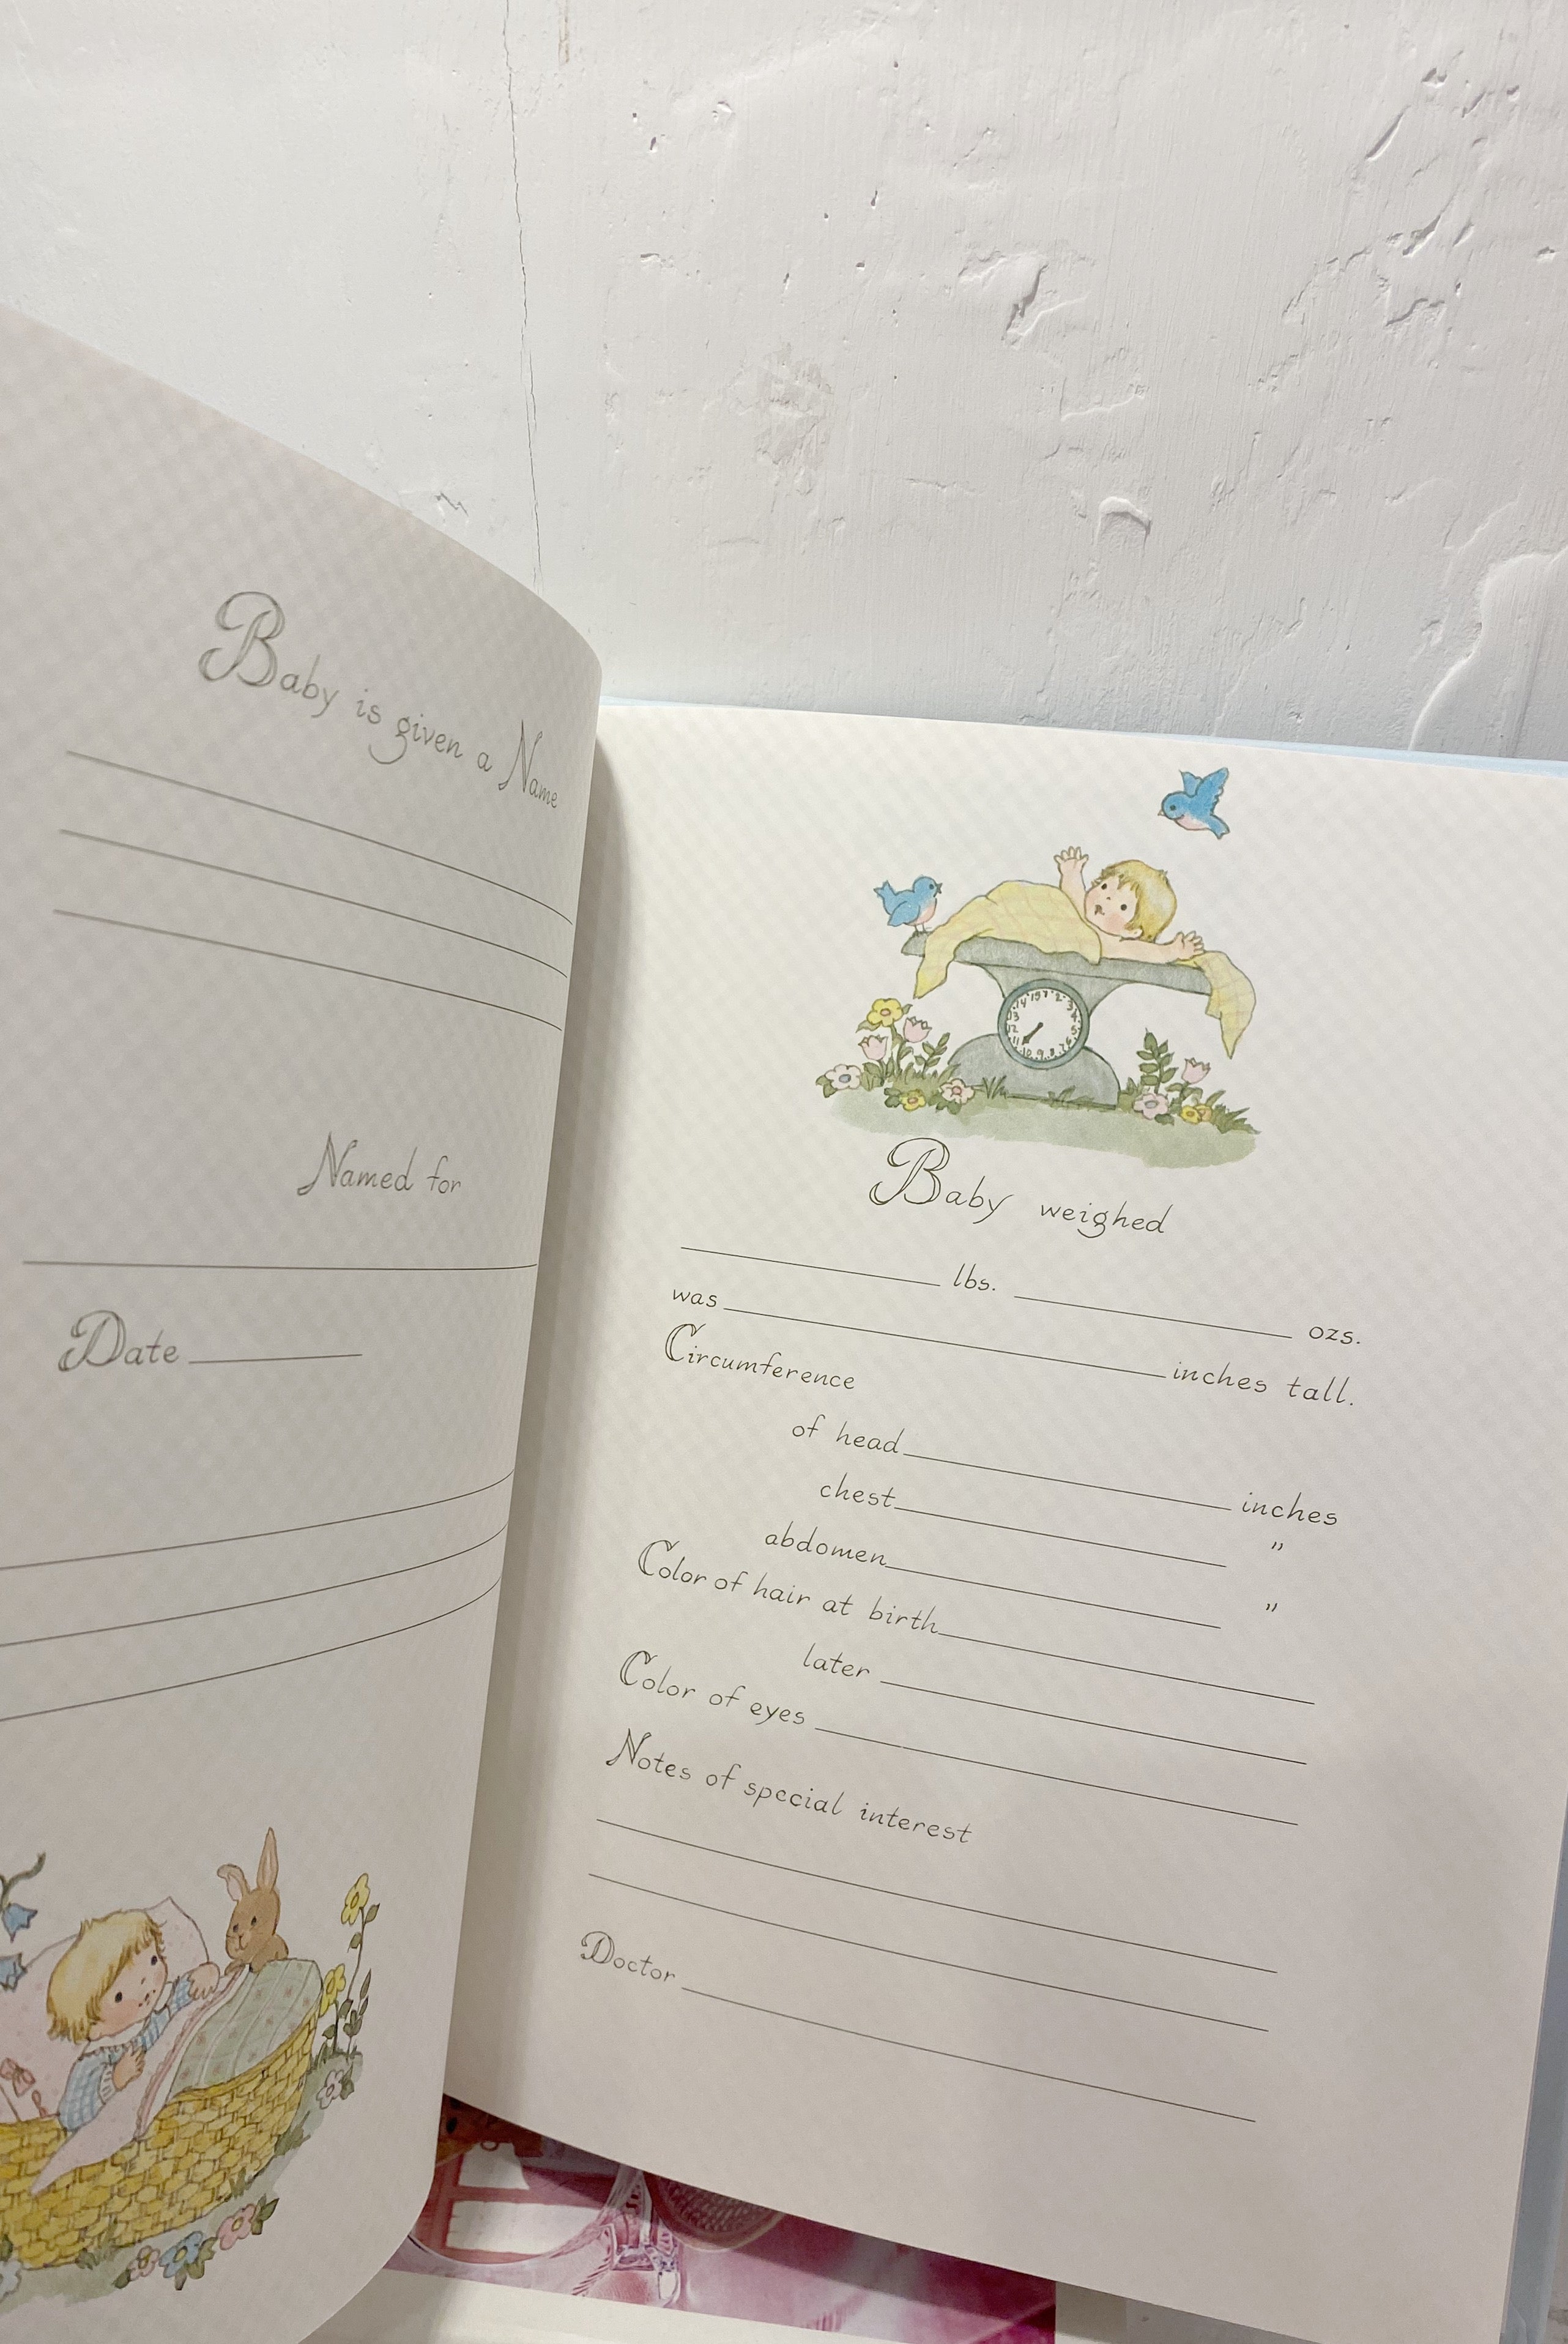 Baby is given a Name
Named for
Date
Baby weighed
lbs. ozs.
was inches tall.
Circumference
of head inches
chest "
abdomen "
Color of hair at birth
later
Color of eyes
Notes of special interest
Doctor